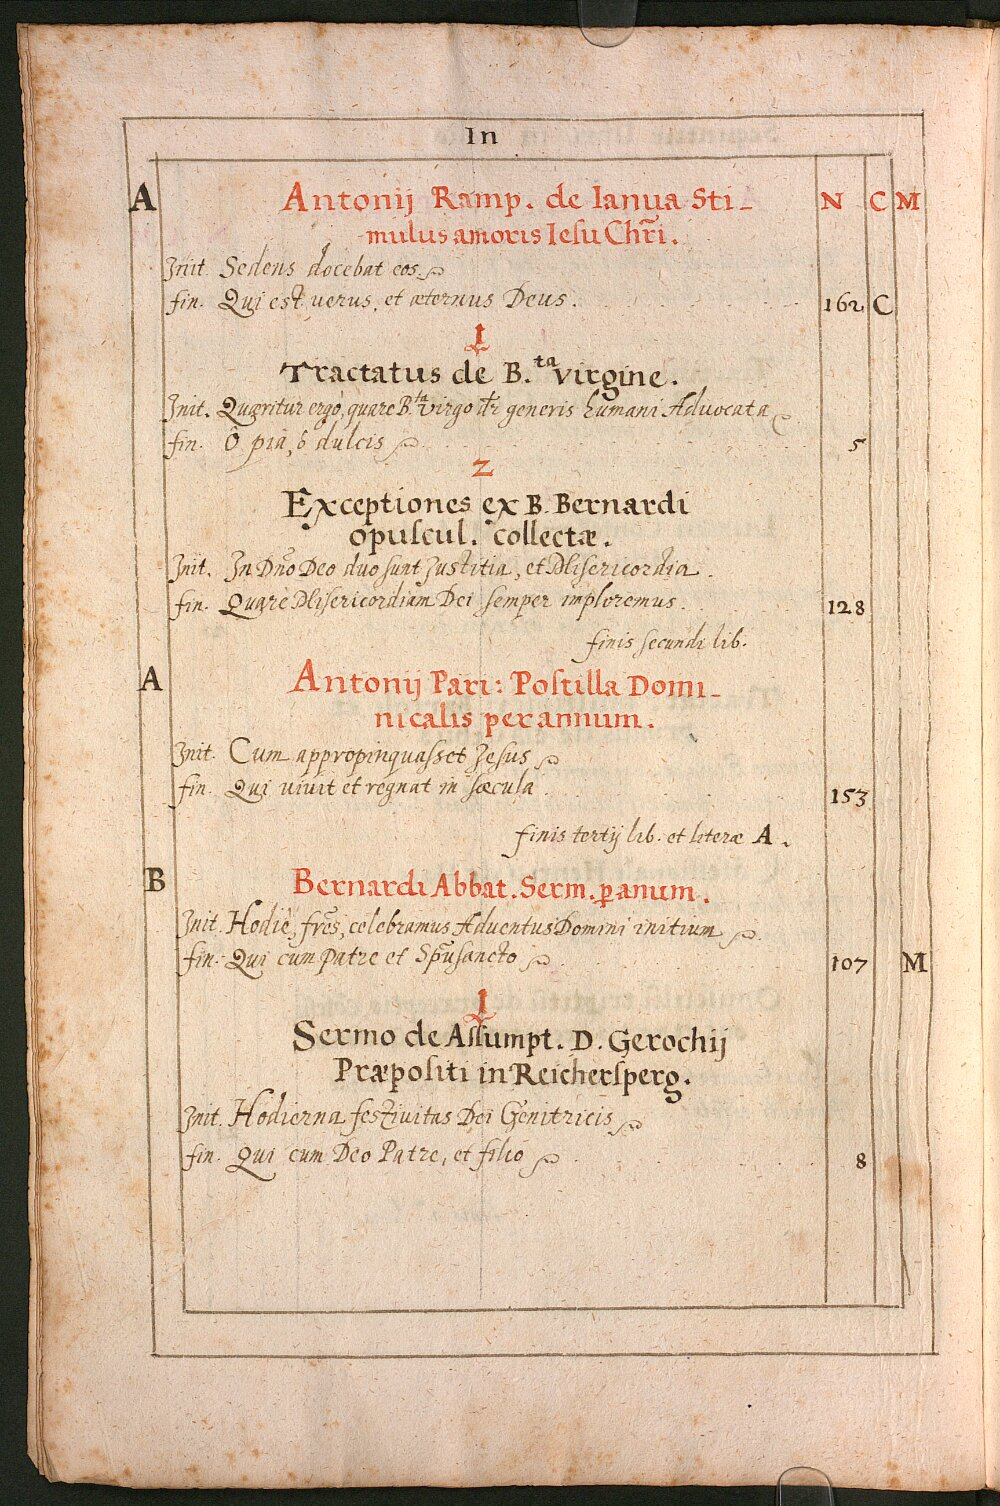 In
A Antonij Ramp. de Ianua Sti- N C M
mulus amoris Iesu Chr̃i.
Init. Sedens docebat eos
fin. Qui est verus, et æternus Deus. 162 C
1
Tractatus de B.ta virgine.
Init. Quæritur ergò, quare B.ta virgo dr̃ generis humani Advocata
fin. Ô pia, ô dulcis 5
2
Exceptiones ex B. Bernardi
opuscul. collectæ.
Init. In Dño Deo duo sunt Justitia, et Misericordia.
fin. Quare Misericordiam Dei semper imploremus. 128
finis secundi lib.
A Antonij Pari: Postilla Domi-
nicalis per annum.
Init. Cum appropinquasset Jesus
fin. Qui vivit et regnat in sæcula 153
finis tertij lib. et literæ A.
B Bernardi Abbat. Serm. ꝑ anum.
Init. Hodiè, frẽs, celebramus Adventus Domini initium
fin. Qui cum Patre et Spũ sancto 107 M
1
Sermo de Assumpt. D. Gerochij
Præpositi in Reichersperg.
Init. Hodierna festivitas Dei Genitricis
fin. Qui cum Deo Patre, et filio 8